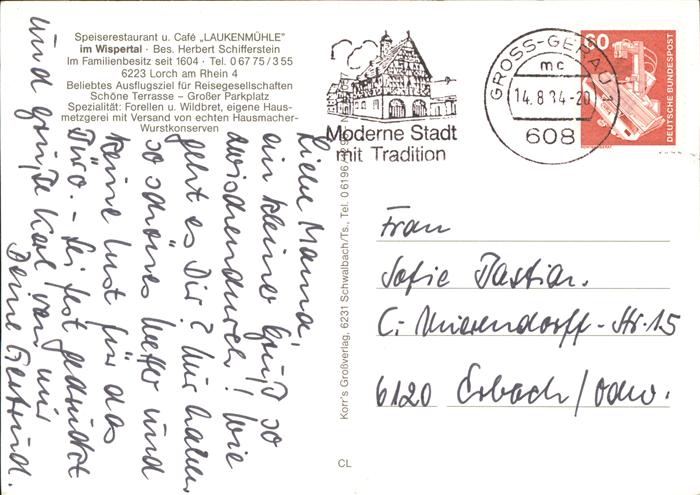 Speiserestaurant u. Café „LAUKENMÜHLE"
im Wispertal · Bes. Herbert Schifferstein
Im Familienbesitz seit 1604 · Tel. 0 67 75 / 3 55
6223 Lorch am Rhein 4
Beliebtes Ausflugsziel für Reisegesellschaften
Schöne Terrasse – Großer Parkplatz
Spezialität: Forellen u. Wildbret, eigene Haus-
metzgerei mit Versand von echten Hausmacher-
Wurstkonserven
Liebe Mama,
ein kleiner Gruß so
zwischendurch! Wie
geht es Dir? Wir haben
so schönes Wetter und
keine Lust für das
Büro. – Sei fest gedrückt
und grüße Karl von mir
Deine Gertrud.
Korr's Großverlag, 6231 Schwalbach/Ts., Tel. 0 61 96
CL
Moderne Stadt
mit Tradition
GROSS-GERAU 1
mc
14.8.84-20
608
60
DEUTSCHE BUNDESPOST
Frau
Sofie Bastian.
C. Mierendorff-Str. 15
6120 Erbach/Odw.